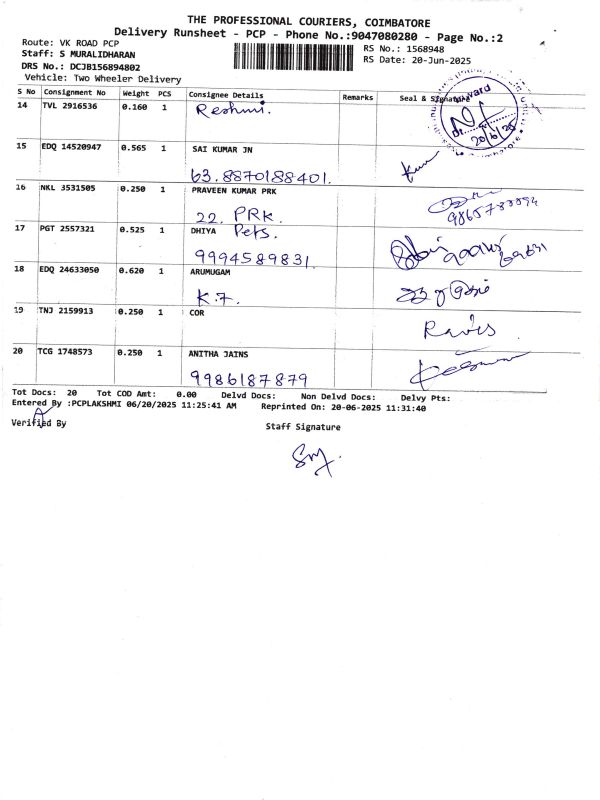 THE PROFESSIONAL COURIERS, COIMBATORE
Delivery Runsheet - PCP - Phone No.:9047080280 - Page No.:2
Route: VK ROAD PCP
RS No.: 1568948
Staff: S MURALIDHARAN
RS Date: 20-Jun-2025
DRS No.: DCJB156894802
Vehicle: Two Wheeler Delivery
S No Consignment No Weight PCS Consignee Details Remarks Seal & Signature
14 TVL 2916536 0.160 1 Reshmi.
20/6/25
15 EDQ 14520947 0.565 1 SAI KUMAR JN
63. 8870188401.
16 NKL 3531505 0.250 1 PRAVEEN KUMAR PRK
22. PRK.
17 PGT 2557321 0.525 1 DHIYA Pets.
9994589831.
18 EDQ 24633050 0.620 1 ARUMUGAM
K.7.
19 TNJ 2159913 0.250 1 COR
20 TCG 1748573 0.250 1 ANITHA JAINS
9986187879
Tot Docs: 20 Tot COD Amt: 0.00 Delvd Docs: Non Delvd Docs: Delvy Pts:
Entered By :PCPLAKSHMI 06/20/2025 11:25:41 AM Reprinted On: 20-06-2025 11:31:40
Verified By
Staff Signature